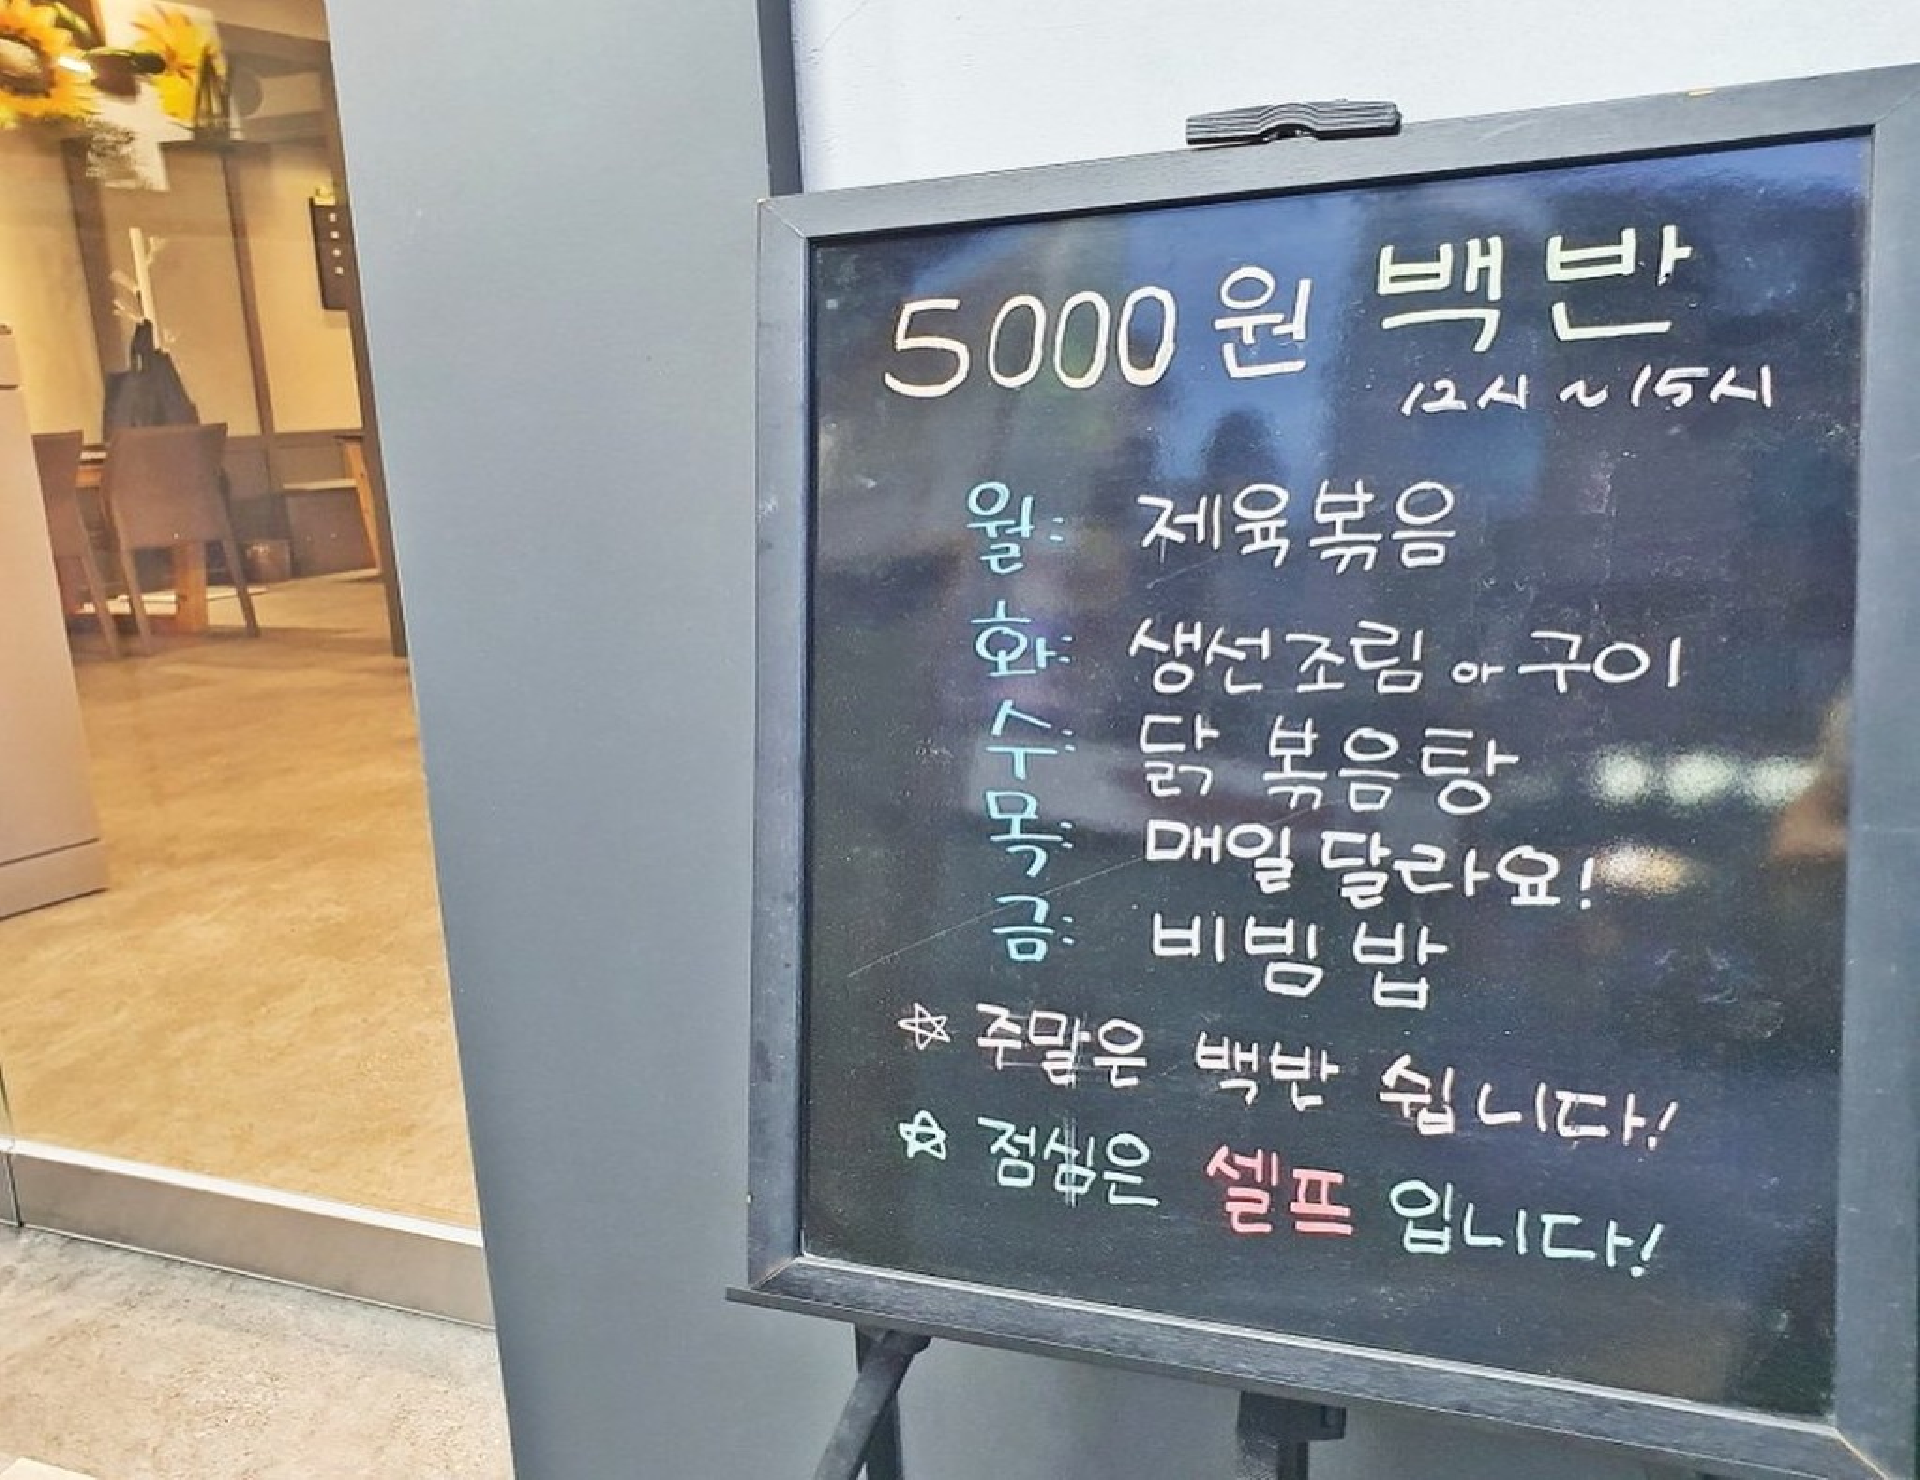 5000원 백반
12시~15시
월: 제육볶음
화: 생선조림 or 구이
수: 닭볶음탕
목: 매일달라요!
금: 비빔밥
☆ 주말은 백반 쉽니다!
☆ 점심은 셀프 입니다!